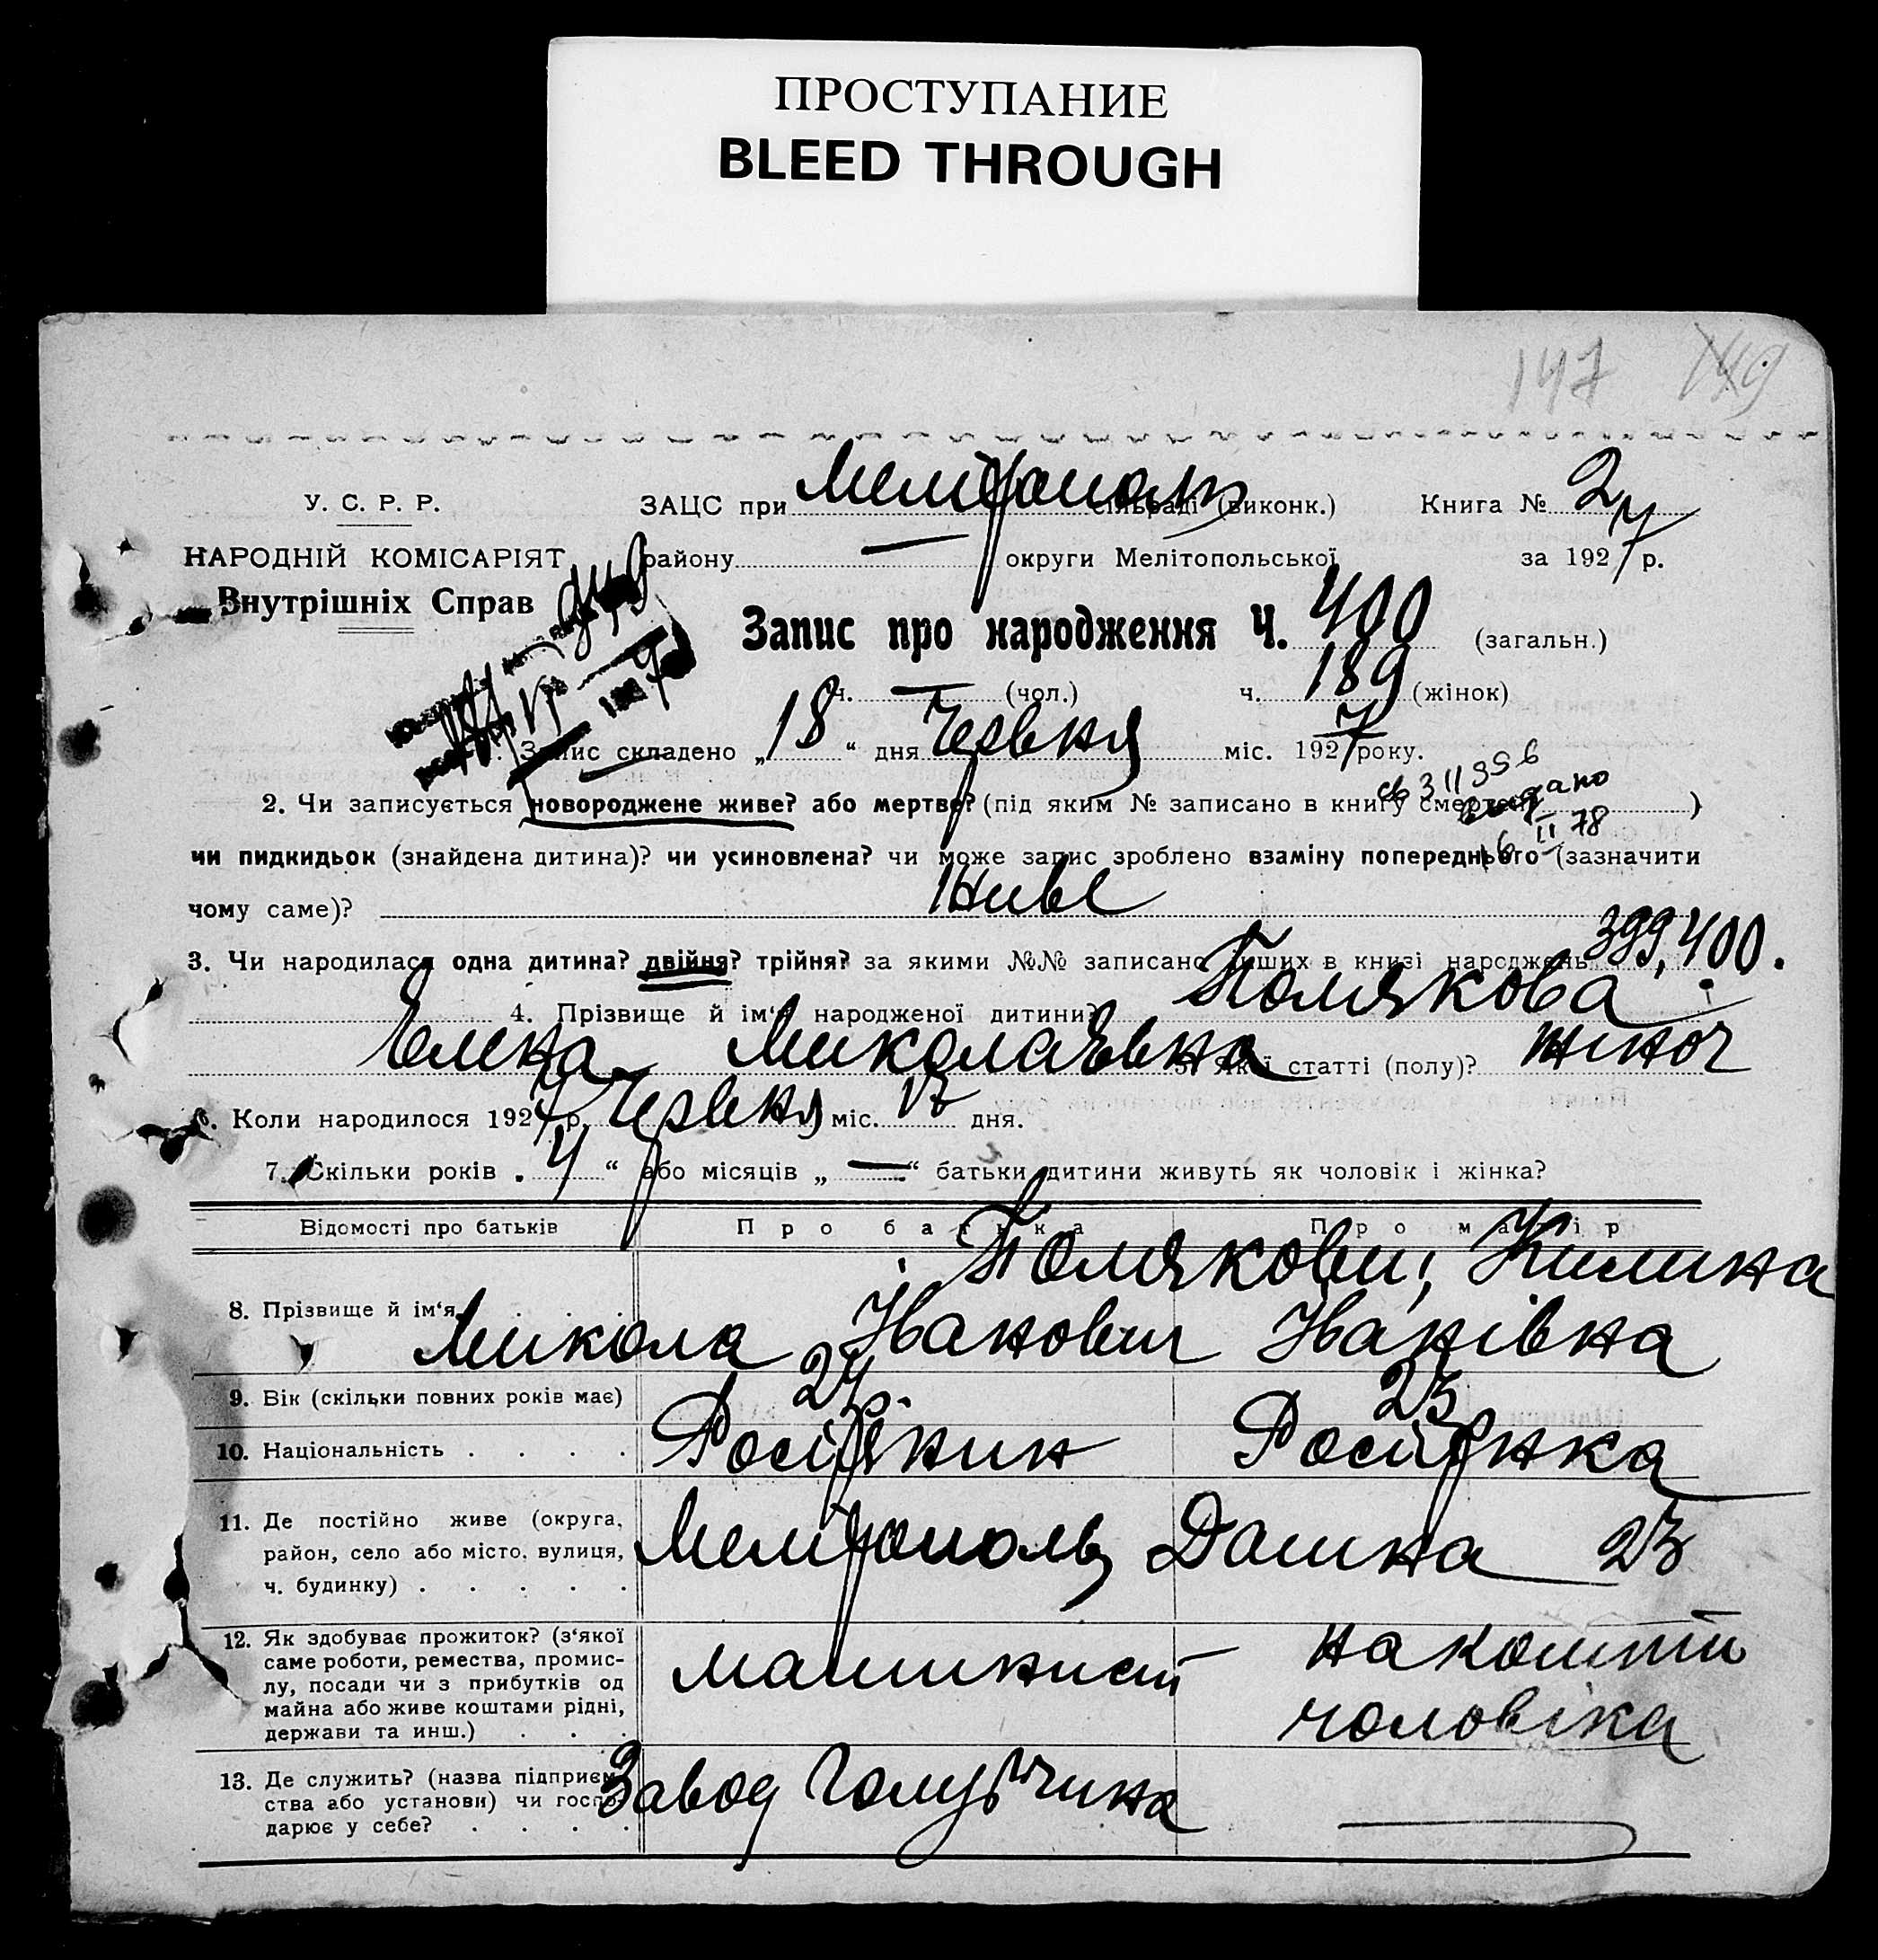 ПРОСТУПАНИЕ
BLEED THROUGH
147 149
У. С. Р. Р.
ЗАЦС при Мелітополь сільраді (виконк.) Книга № 2
НАРОДНІЙ КОМІСАРІЯТ
району — округи Мелітопольської за 1927 р.
Внутрішніх Справ
Запис про народження Ч. 400 (загальн.)
ч. — (чол.) ч. 189 (жінок)
Запис складено „18“ дня Червня міс. 1927 року.
2. Чи записується новороджене живе? або мертве? (під яким № записано в книгу смертей )
выдано
16 II 78
чи пидкидьок (знайдена дитина)? чи усиновлена? чи може запис зроблено взаміну попереднього (зазначити
чому саме)? Живе
3. Чи народилася одна дитина? двійня? трійня? за якими №№ записано інших в книзі народжень 399, 400.
4. Прізвище й ім‘я народженої дитини? Полякова
Олена Миколаєвна 5. Якої статті (полу)? жіноч
6. Коли народилося 1927 р. Червня міс. 17 дня.
7. Скільки років „4“ або місяців „—“ батьки дитини живуть як чоловік і жінка?
Відомості про батьків Про батька Про матір
8. Прізвище й ім‘я Полякови, Килина
Микола Іванович Іванівна
9. Вік (скільки повних років має) 24 23
10. Національність . . . . Росіянин Росіянка
11. Де постійно живе (округа,
район, село або місто, вулиця,
ч. будинку) . . . . . Мелітополь 23
12. Як здобуває прожиток? (з‘якої
саме роботи, ремества, промис-
лу, посади чи з прибутків од
майна або живе коштами рідні,
держави та инш.) . . . машинист на кошти
чоловіка
13. Де служить? (назва підприєм-
ства або установи) чи госпо-
дарює у себе? . . . . Завод